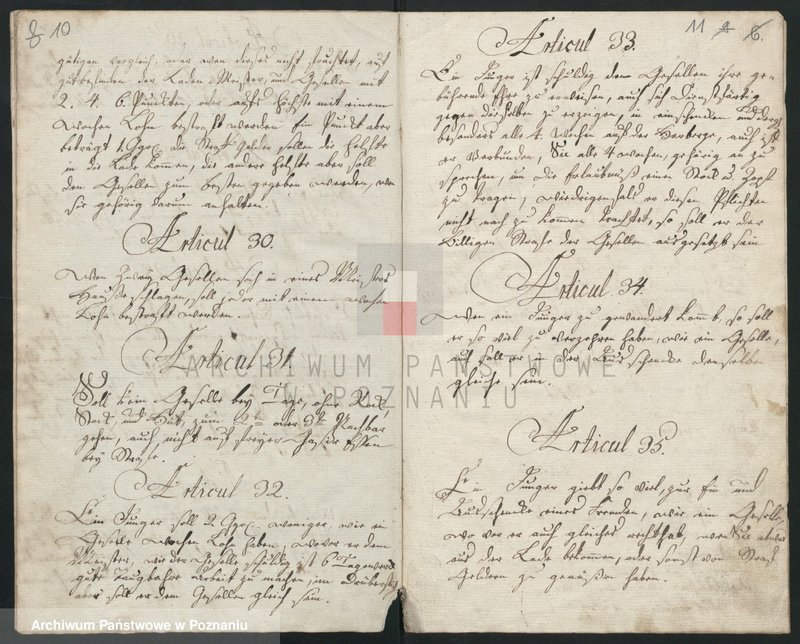 8 10
gütigen Vergleich, oder wen dieses nicht fruchtet, auf
gutbefinden der Laden-Meister, und Gesellen mit
2. 4. 6 Punckten, oder aufs höchste mit einem
Wochen Lohn bestraft werden. Ein Punckt aber
beträgt 1. Ggr. die Straf-Gelder sollen die Helfte
in die Lade kommen, die andere Helfte aber soll
den Gesellen zum besten gegeben werden, wen
sie gehörig darum anhalten.
Articul 30.
Wen zwey Gesellen sich in eines Meisters
Hause schlagen, soll jeder mit einem Wochen
Lohn bestraft werden.
Articul 31.
Soll kein Geselle bey Tage, ohne Rock,
Stock, und Hut, zum 2ten oder 3ten Nachbar
gehen, auch nicht auf freyer Gasse Essen
bey Strafe.
Articul 32.
Ein Junger soll 2 Ggr. weniger, wie ein
Geselle Wochen Lohn haben, wovor er dem
Meister, wie der Geselle, schuldig ist 6 Tagewerck
gute Arbeit zu machen, im
aber soll er dem Gesellen gleich sein.
11 6.
Articul 33.
Ein Junger ist schuldig dem Gesellen ihre ge-
bührende Ehre zu erweisen, auch sich Dienstfärtig
gegen dieselben zu erzeigen, in einschencken und
besonders alle 4. Wochen auf der Herberge, auch ist
er Verbunden, Sie alle 4 Wochen, gehörig an zu
sprechen, um die Erlaubniß einen Stock u. Zopf
zu tragen, wiedrigenfals er diesen Pflichten
nicht nach zu kommen trachtet, so soll er der
billigen Strafe der Gesellen ausgesetzt sein
Articul 34.
Wen ein Junger zu gewandert komt, so soll
er so viel zu verzehren haben, wie ein Geselle,
auch soll er in der denselben
gleich sein.
Articul 35.
Ein Junger giebt so viel, zur Ein und
Ausschencke eines Fremden, wie ein Geselle,
wo vor er auch gleiches recht hat, wen Sie etwas
aus der Lade bekommen, oder sonst von Straf
Geldern zu genüßen haben.
ARCHIWUM PAŃSTWOWE
W POZNANIU
Archiwum Państwowe w Poznaniu